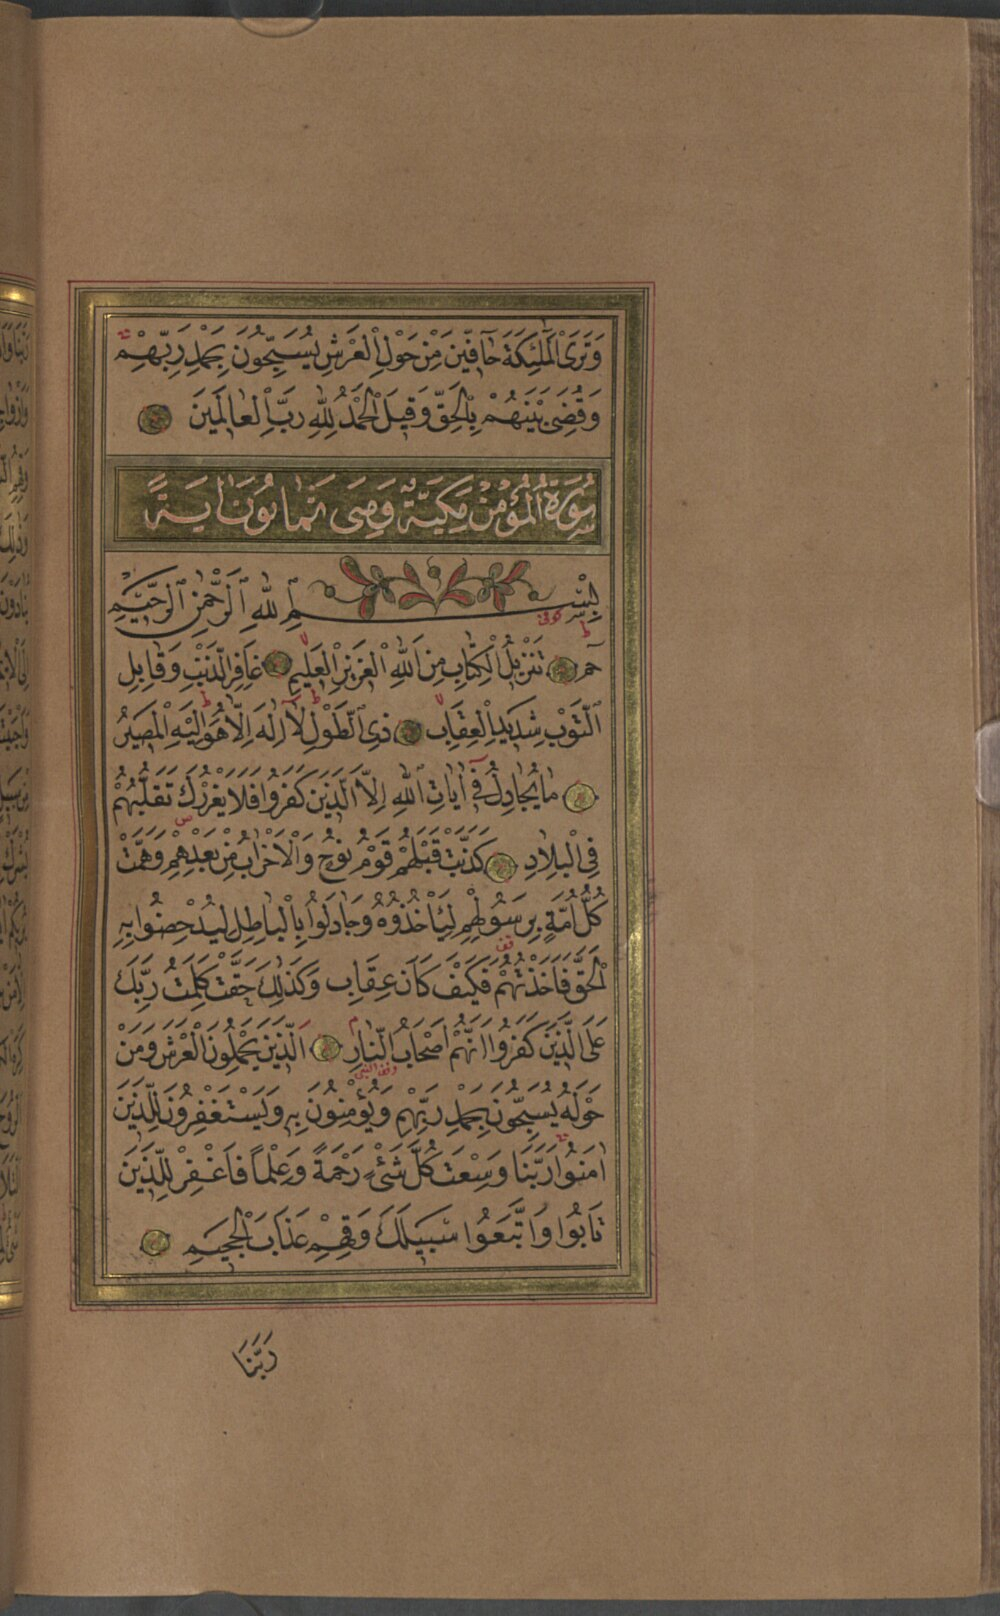 وَتَرَى الْمَلٰئِكَةَ حَافِّينَ مِنْ حَوْلِ الْعَرْشِ يُسَبِّحُونَ بِحَمْدِ رَبِّهِمْ
وَقُضِيَ بَيْنَهُمْ بِالْحَقِّ وَقِيلَ الْحَمْدُ لِلّٰهِ رَبِّ الْعَالَمِينَ
سُورَةُ الْمُؤْمِنِ مَكِّيَّةٌ وَهِيَ ثَمَانُونَ اٰيَةً
بِسْمِ اللّٰهِ الرَّحْمٰنِ الرَّحِيمِ
حٰمٓ تَنْزِيلُ الْكِتَابِ مِنَ اللّٰهِ الْعَزِيزِ الْعَلِيمِ غَافِرِ الذَّنْبِ وَقَابِلِ
التَّوْبِ شَدِيدِ الْعِقَابِ ذِى الطَّوْلِ لَا اِلٰهَ اِلَّا هُوَ اِلَيْهِ الْمَصِيرُ
مَا يُجَادِلُ فِى اٰيَاتِ اللّٰهِ اِلَّا الَّذِينَ كَفَرُوا فَلَا يَغْرُرْكَ تَقَلُّبُهُمْ
فِى الْبِلَادِ كَذَّبَتْ قَبْلَهُمْ قَوْمُ نُوحٍ وَالْاَحْزَابُ مِنْ بَعْدِهِمْ وَهَمَّتْ
كُلُّ اُمَّةٍ بِرَسُولِهِمْ لِيَأْخُذُوهُ وَجَادَلُوا بِالْبَاطِلِ لِيُدْحِضُوا بِهِ
الْحَقَّ فَاَخَذْتُهُمْ فَكَيْفَ كَانَ عِقَابِ وَكَذٰلِكَ حَقَّتْ كَلِمَتُ رَبِّكَ
عَلَى الَّذِينَ كَفَرُوا اَنَّهُمْ اَصْحَابُ النَّارِ اَلَّذِينَ يَحْمِلُونَ الْعَرْشَ وَمَنْ
حَوْلَهُ يُسَبِّحُونَ بِحَمْدِ رَبِّهِمْ وَيُؤْمِنُونَ بِهِ وَيَسْتَغْفِرُونَ لِلَّذِينَ
اٰمَنُوا رَبَّنَا وَسِعْتَ كُلَّ شَيْءٍ رَحْمَةً وَعِلْمًا فَاغْفِرْ لِلَّذِينَ
تَابُوا وَاتَّبَعُوا سَبِيلَكَ وَقِهِمْ عَذَابَ الْجَحِيمِ
رَبَّنَا